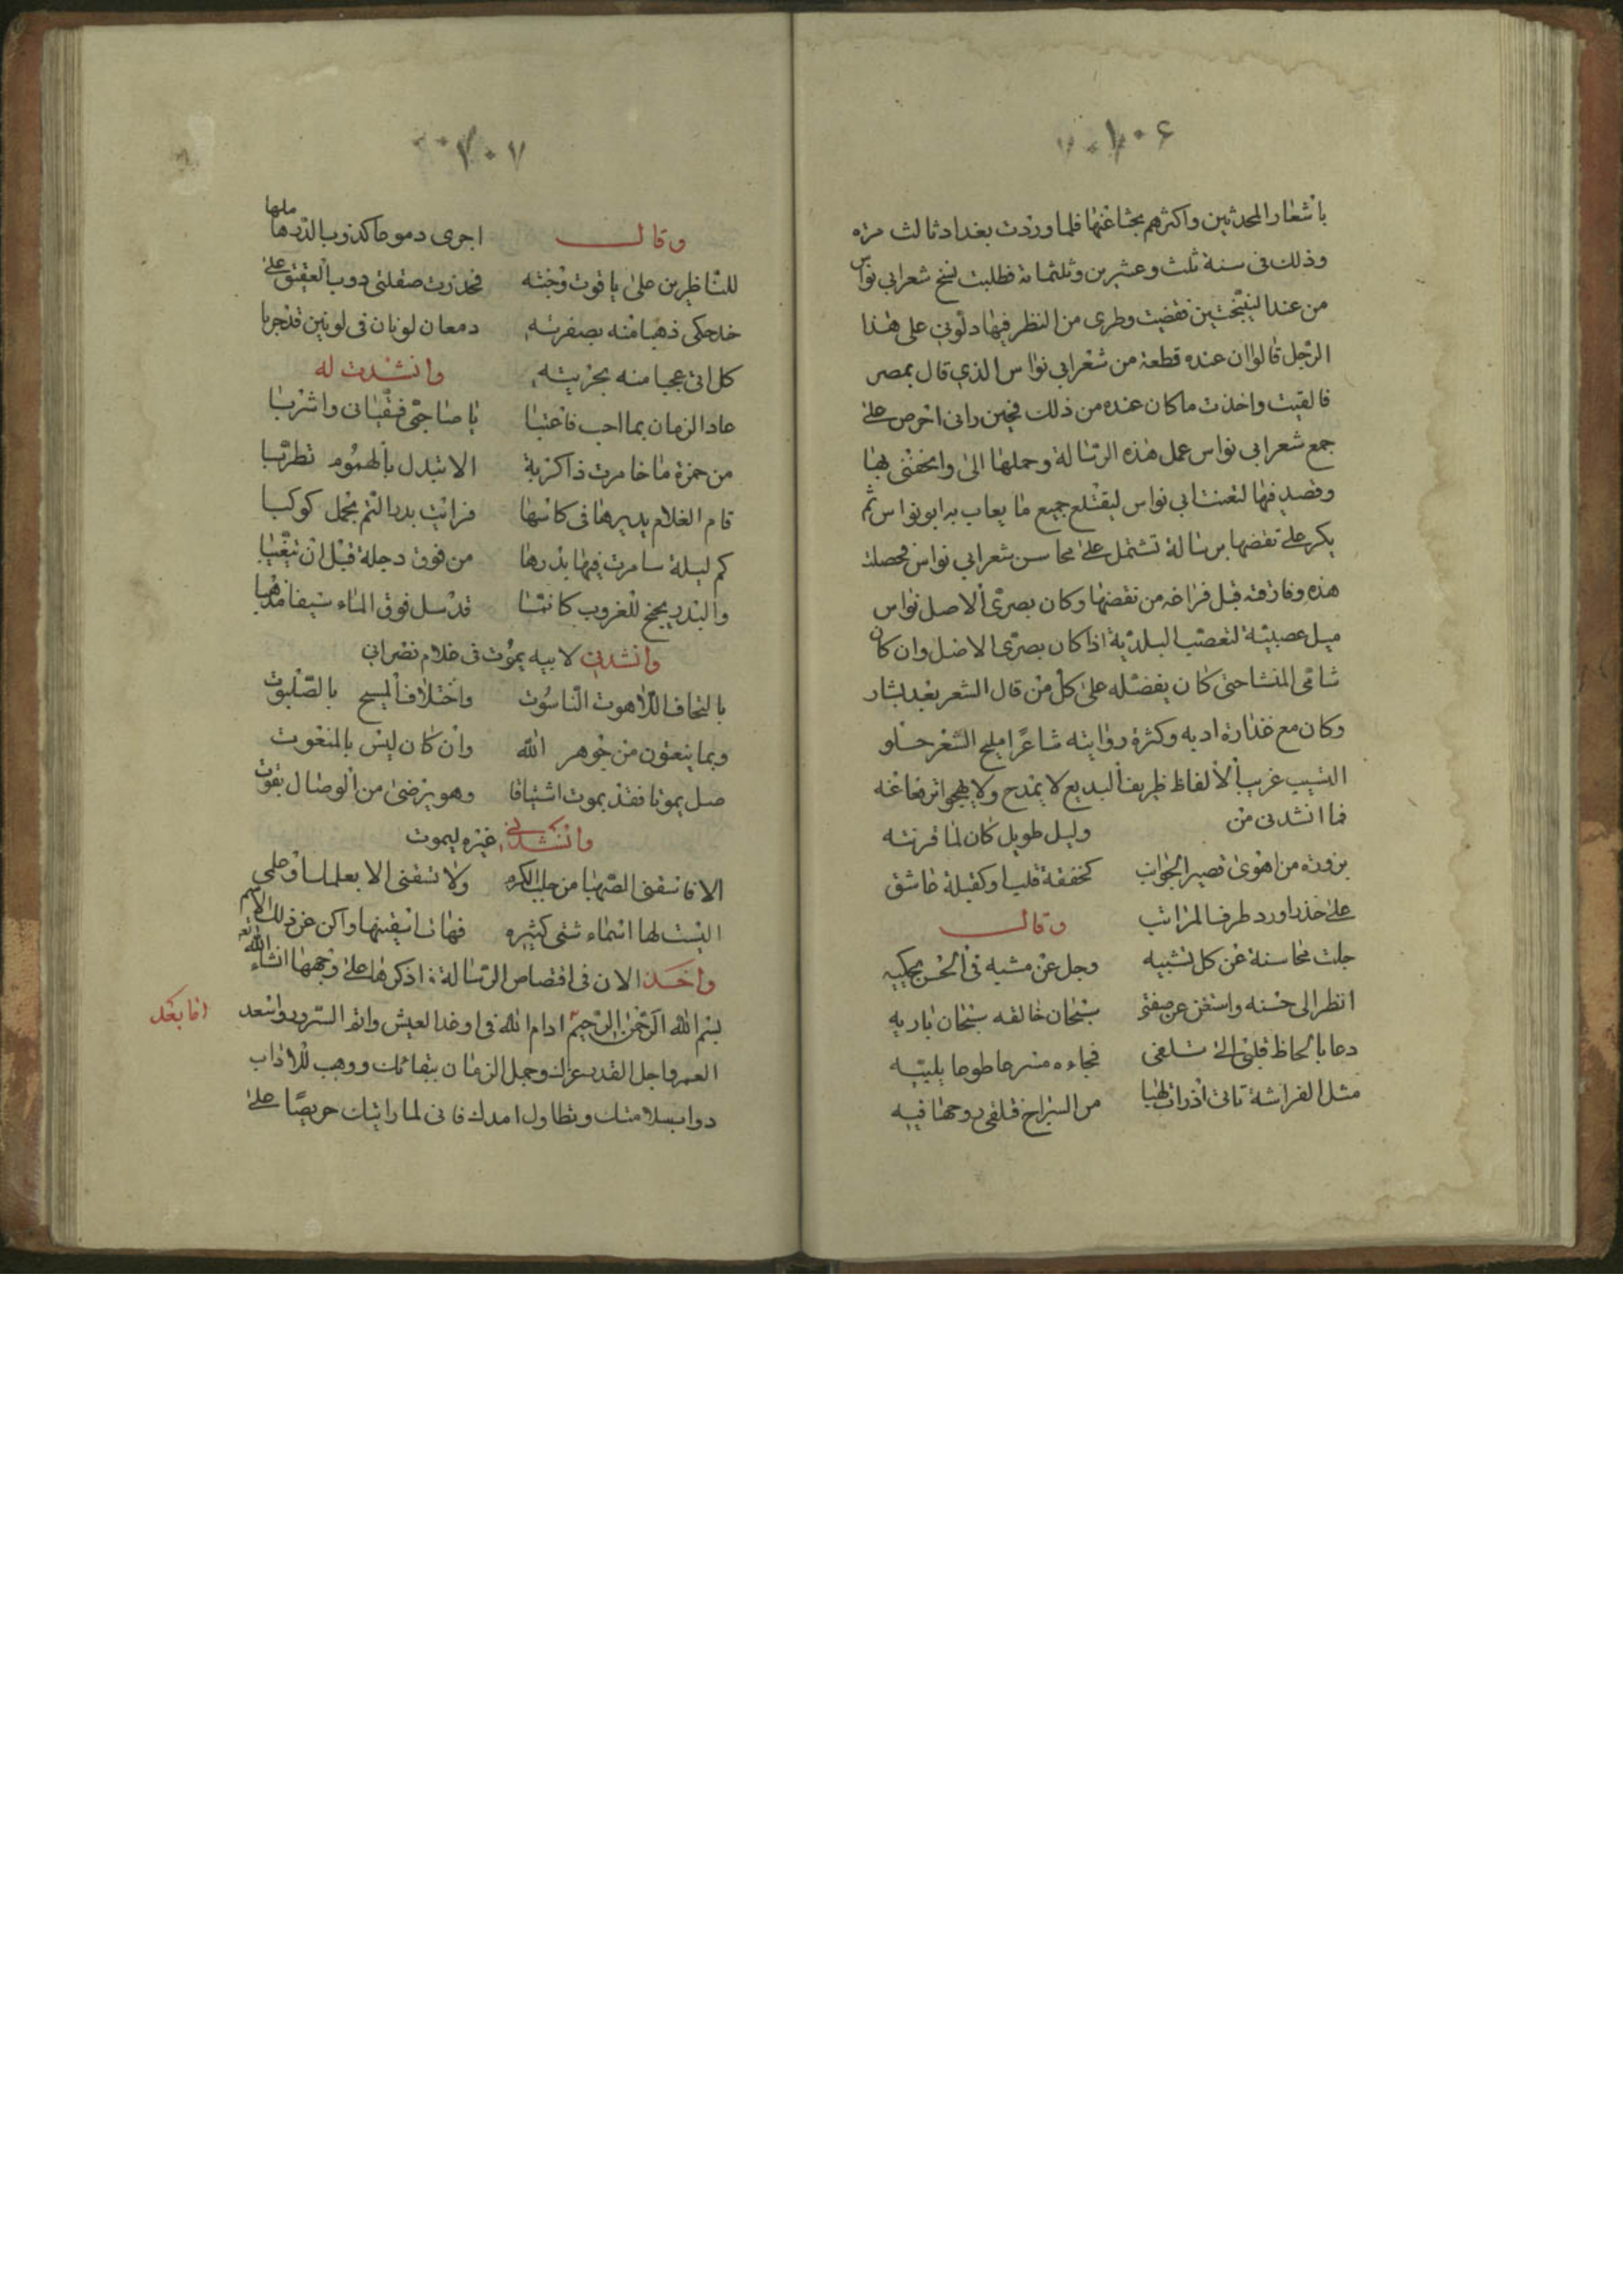 ٦٠٤
باشعار المحدثين واكثرهم بحثا عنها فلما وردت بغداد ثالث مرة
وذلك فى سنة ثلث وعشرين وثلثمائة فطلبت نسخ شعر ابى نواس
من عند فقضيت وطرى من النظر فيها دلونى على هذا
الرجل قالوا ان عنده قطعة من شعر ابى نواس الذي قال بمصر
فالقيت واخذت ما كان عنده من ذلك فحين رانى احرص على
جمع شعر ابى نواس عمل هذه الرسالة وحملها الى واتحفنى بها
وقصد فيها لتعنت ابى نواس ليقتلع جميع ما يعاب به ابو نواس ثم
يكر على نقضها برسالة تشتمل على محاسن شعر ابى نواس فحصلت
هذه وفارقته قبل فراغه من نقضها وكان بصرى الاصل نواس
ميل عصبية لتعصب البلدية اذا كان بصرى الاصل وان كان
شامى المنشا حتى كان يفضله على كل من قال الشعر بعد بشار
وكان مع غزارة ادبه وكثرة روايته شاعرا مليح الشعر حلو
النسيب غريب الالفاظ ظريف البديع لا يمدح ولا يهجو اترفعا عنه
فما انشدنى من وليل طويل كان لما قرنته
بزورة من اهوى قصير الجوانب كخفقة قلب او كقبلة عاشق
على حذر او رد طرف المراقب وقال
جلت محاسنه عن كل تشبيه وجل عن مشبه فى الحسن يحكيه
انظر الى حسنه واستغن عن صفتى سبحان خالقه سبحان باريه
دعا بالحاظ قلبى الى تلفى فجاءه مسرعا طوعا يلبيه
مثل الفراشة تاتى اذ رات لهبا من السراج فتلقى روحها فيه
٢٠٧
وقال اجرى دموعا كذوب الدر
للناظرين على ياقوت وجنته فحدرت مقلتى ذوب العقيق على
خد حكى ذهبا منه بصفرته دمعان لونان فى لونين قد جريا
كل اتى عجبا منه بجريته وانشدت له
عاد الزمان بما احب فاعتبا يا صاحبى فسقيانى واشربا
من خمرة ما خامرت ذا كربة الا تبدل بالهموم تطربا
قام الغلام يديرها فى كاسها فرايت بدر التم يحمل كوكبا
كم ليلة سامرت فيها بدرها من فوق دجلة قبل ان يتغيبا
والبدر يجنح للغروب كانما قد سل فوق الماء سيفا مذهبا
وانشدنى لابيه يموت فى غلام نصرانى
بالتحاف اللاهوت الناسوت واختلاف المسيح بالصلبوت
وبما ينعتون من جوهر الله وان كان ليس بالمنعوت
صل يموتا فقد يموت اشتياقا وهو يرضى من الوصال بقوت
وانشدنى غيره ليموت
الا فاسقنى الصهبا من حلب الكرم ولا تسقنى الا
اليست لها اسماء شتى كثيره فهات اسقينها واكن عن ذلك الاسم
واخذ الان فى اقتصاص الرسالة اذكرها على وجهها انشاء الله
بسم الله الرحمن الرحيم ادام الله فى اوغد العيش واتم السرور واسعد
العمر واجل القدر عزك وجمل الزمان ببقائك ووهب للاداب
دواب سلامتك وتطاول امدك فانى لما رايتك حريصا على
اما بعد